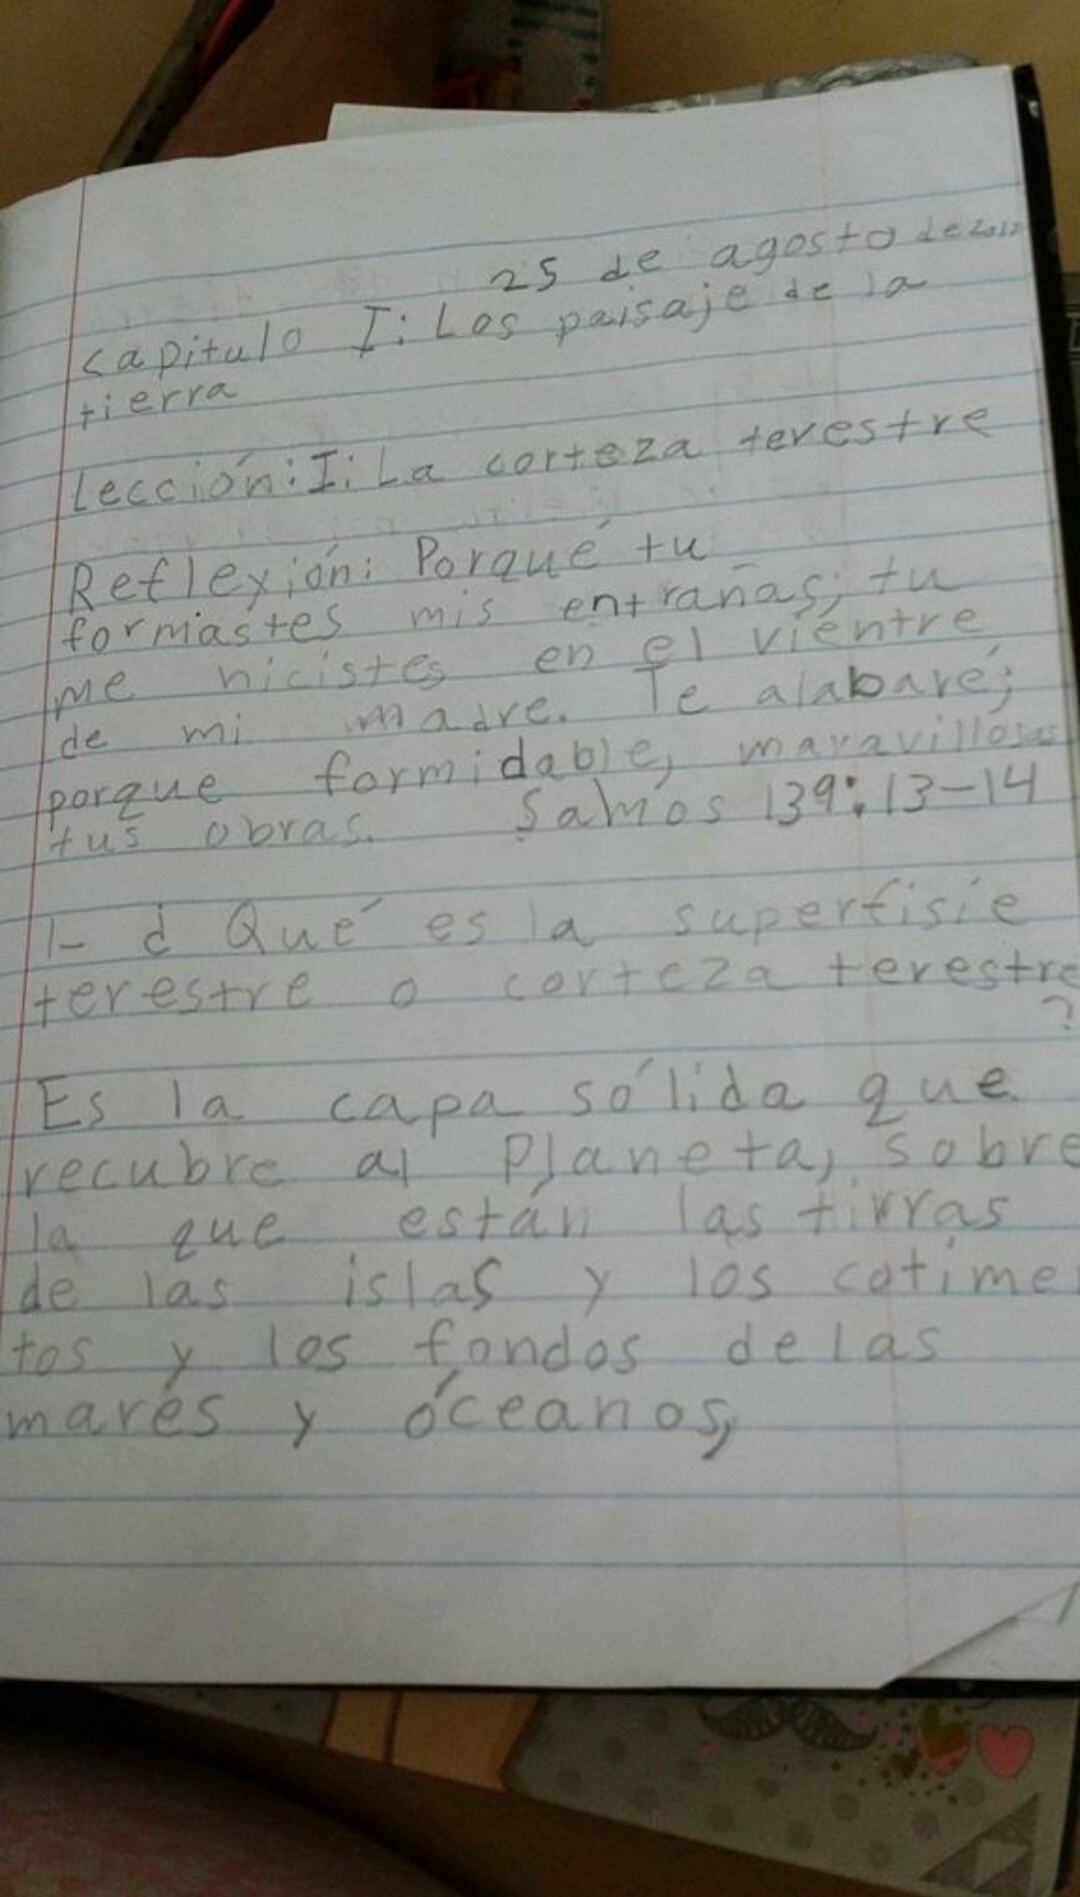 25 de agosto de
capitulo I: Los paisaje de la
tierra
Lección: I: La corteza terestre
Reflexión: Porqué tu
formastes mis entrañas; tu
me hicistes en el viéntre
de mi madre. Te alabaré;
porque formidable, maravillosas
tus obras. Samos 139:13-14
1- ¿ Qué es la superfisie
terestre o corteza terestre
?
Es la capa sólida que
recubre al Planeta, sobre
la que están las tirras
de las islas y los cotime
tos y los fondos de las
marés y óceanos,